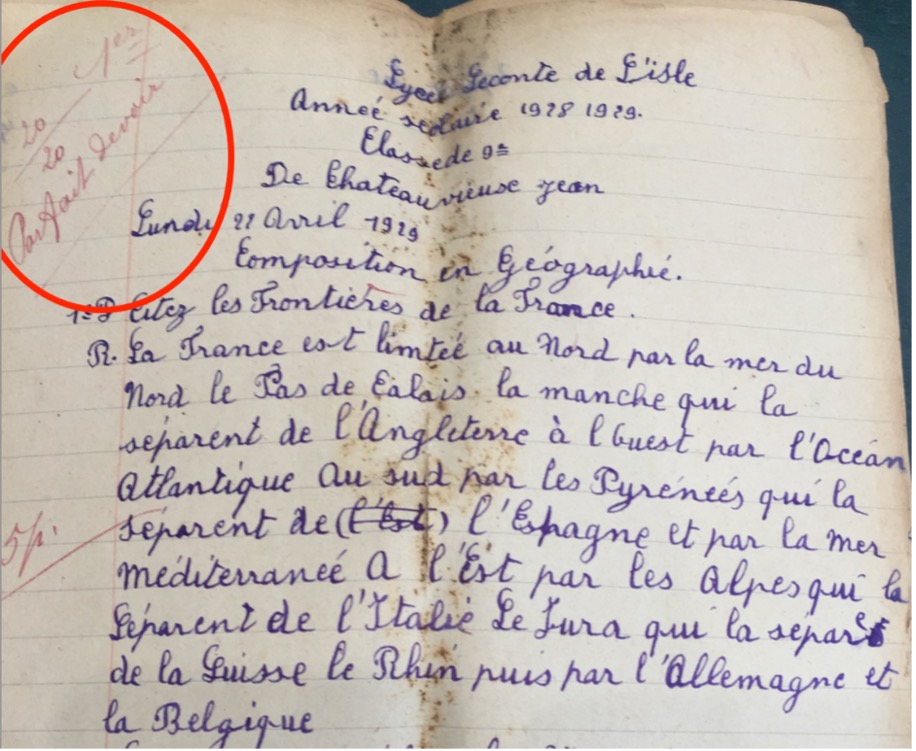 1er
20
20
Parfait devoir
Lycée Leconte de L'isle
Anneé scolaire 1928 1929.
Classe de 9e
De Chateauvieuse Jean
Lundi 22 Avril 1929
Composition en Géographié.
1º D Citez les Frontières de la France.
R. La France est limteé au Nord par la mer du
Nord le Pas de Calais la manche qui la
séparent de l'Angleterre à l'Ouest par l'Océan
Atlantique Au sud par les Pyréneés qui la
séparent de (l'Est) l'Espagne et par la mer
méditerraneé A l'Est par les Alpes qui la
Séparent de l'Italie Le Jura qui la sépare
de la Suisse le Rhin puis par l'Allemagne et
la Belgique
5 p.